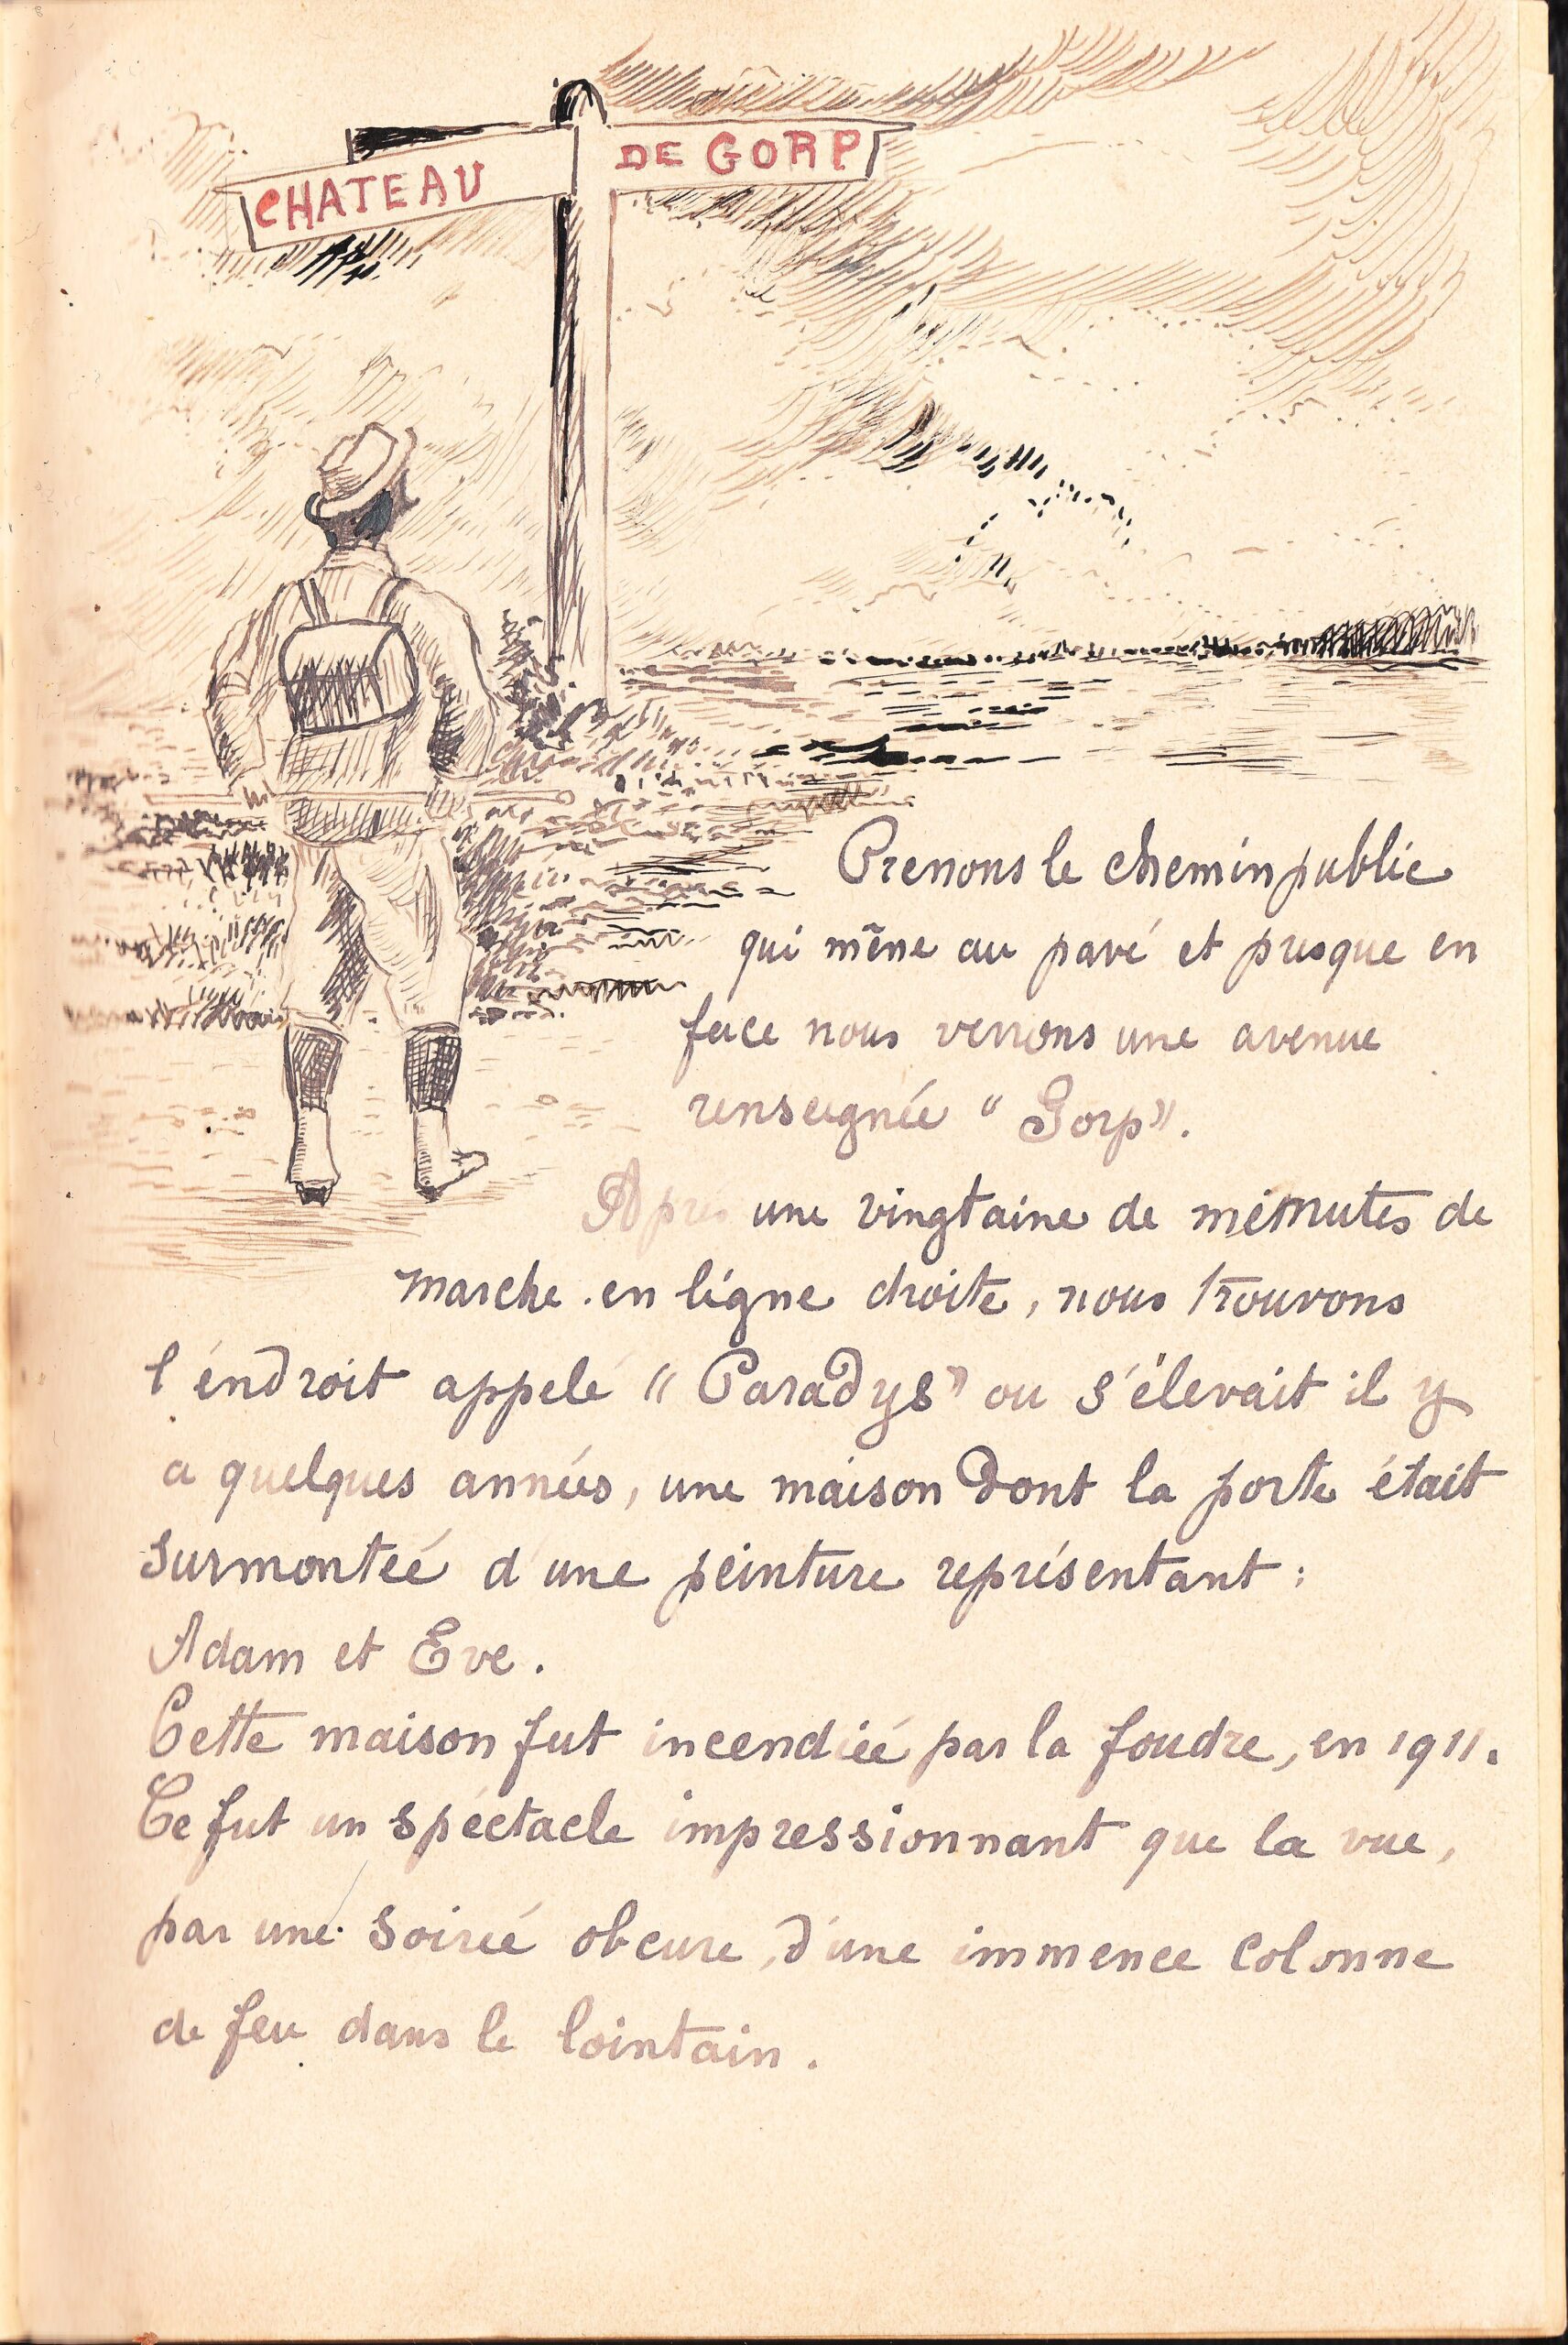 CHATEAU DE GORP
Prenons le chemin public
qui mène au pavé et presque en
face nous verrons une avenue
renseignée " Gorp".
Après une vingtaine de minutes de
marche en ligne droite, nous trouvons
l'éndroit appelé " Paradys" ou s'élevait il y
a quelques années, une maison dont la porte était
surmonteé d'une peinture représentant :
Adam et Eve.
Cette maison fut incendieé par la foudre, en 1911.
Ce fut un spéctacle impressionnant que la vue,
par une soireé obcure, d'une immence colonne
de feu dans le lointain.